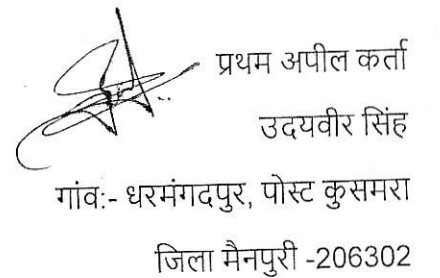 प्रथम अपील कर्ता
उदयवीर सिंह
गांव:- धरमंगदपुर, पोस्ट कुसमरा
जिला मैनपुरी -206302